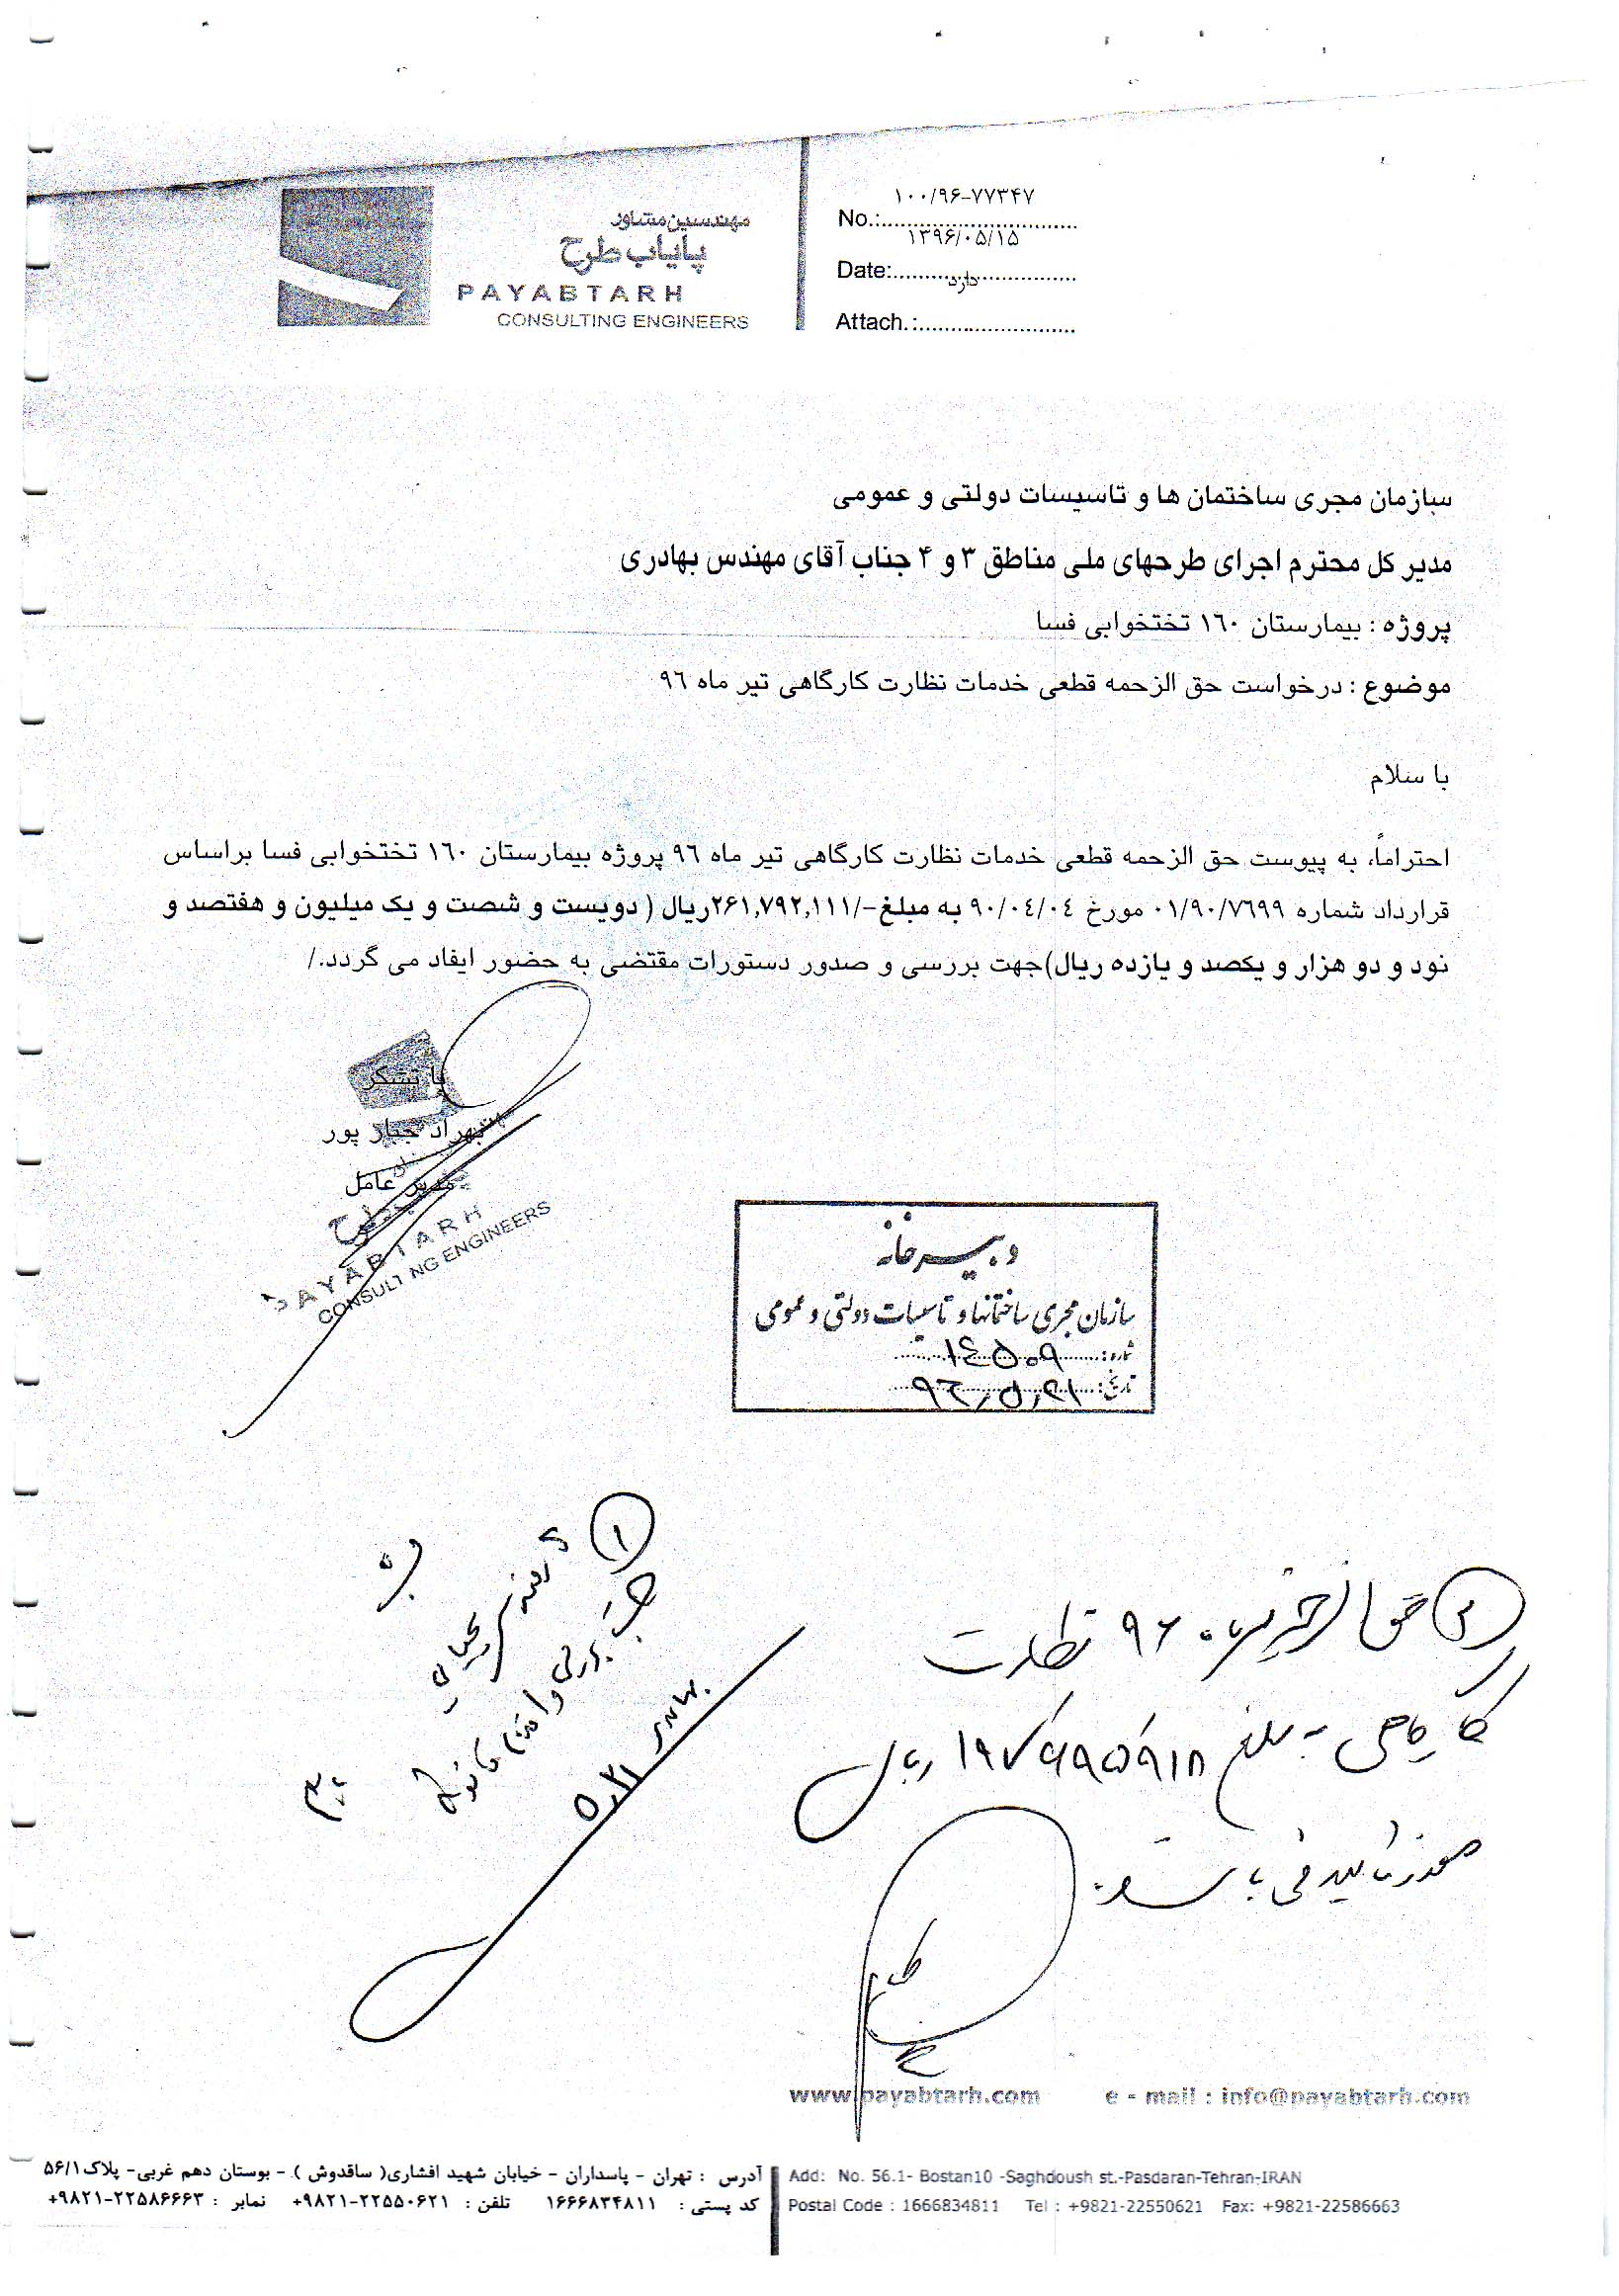 مهندسین مشاور
پایاب طرح
PAYABTARH
CONSULTING ENGINEERS
۱۰۰/۹۶-۷۷۳۴۷
No.:
۱۳۹۶/۰۵/۱۵
Date:
دارد
Attach.:
سازمان مجری ساختمان ها و تاسیسات دولتی و عمومی
مدیر کل محترم اجرای طرحهای ملی مناطق ۳ و ۴ جناب آقای مهندس بهادری
پروژه : بیمارستان ١٦٠ تختخوابی فسا
موضوع : درخواست حق الزحمه قطعی خدمات نظارت کارگاهی تیر ماه ٩٦
با سلام
احتراماً، به پیوست حق الزحمه قطعی خدمات نظارت کارگاهی تیر ماه ٩٦ پروژه بیمارستان ١٦٠ تختخوابی فسا براساس
قرارداد شماره ٠١/٩٠/٧٦٩٩ مورخ ٩٠/٠٤/٠٤ به مبلغ-/۲۶۱,۷۹۲,۱۱۱ریال ( دویست و شصت و یک میلیون و هفتصد و
نود و دو هزار و یکصد و یازده ریال)جهت بررسی و صدور دستورات مقتضی به حضور ایفاد می گردد./
با تشکر
بهراد جبار پور
مدیر عامل
PAYABTARH
CONSULTING ENGINEERS
دبیرخانه
سازمان مجری ساختمانها و تاسیسات دولتی و عمومی
شماره: ١٤٥٠٩
تاریخ: ٩٦/٥/٢١
۱
جهت بررسی و اقدام قانونی
۵/۲۱
حق الزحمه تیرماه ۹۶ نظارت
کارگاهی به مبلغ ۱۹۷/۶۹۵/۹۱۸ ریال
مورد تایید می باشد.
www.payabtarh.com e - mail : info@payabtarh.com
آدرس : تهران - پاسداران - خیابان شهید افشاری( ساقدوش ) - بوستان دهم غربی- پلاک ۵۶/۱
کد پستی : ۱۶۶۶۸۳۴۸۱۱ تلفن : ۲۲۵۵۰۶۲۱-۹۸۲۱+ نمابر : ۲۲۵۸۶۶۶۳-۹۸۲۱+
Add: No. 56.1- Bostan10 -Saghdoush st.-Pasdaran-Tehran-IRAN
Postal Code : 1666834811 Tel : +9821-22550621 Fax: +9821-22586663